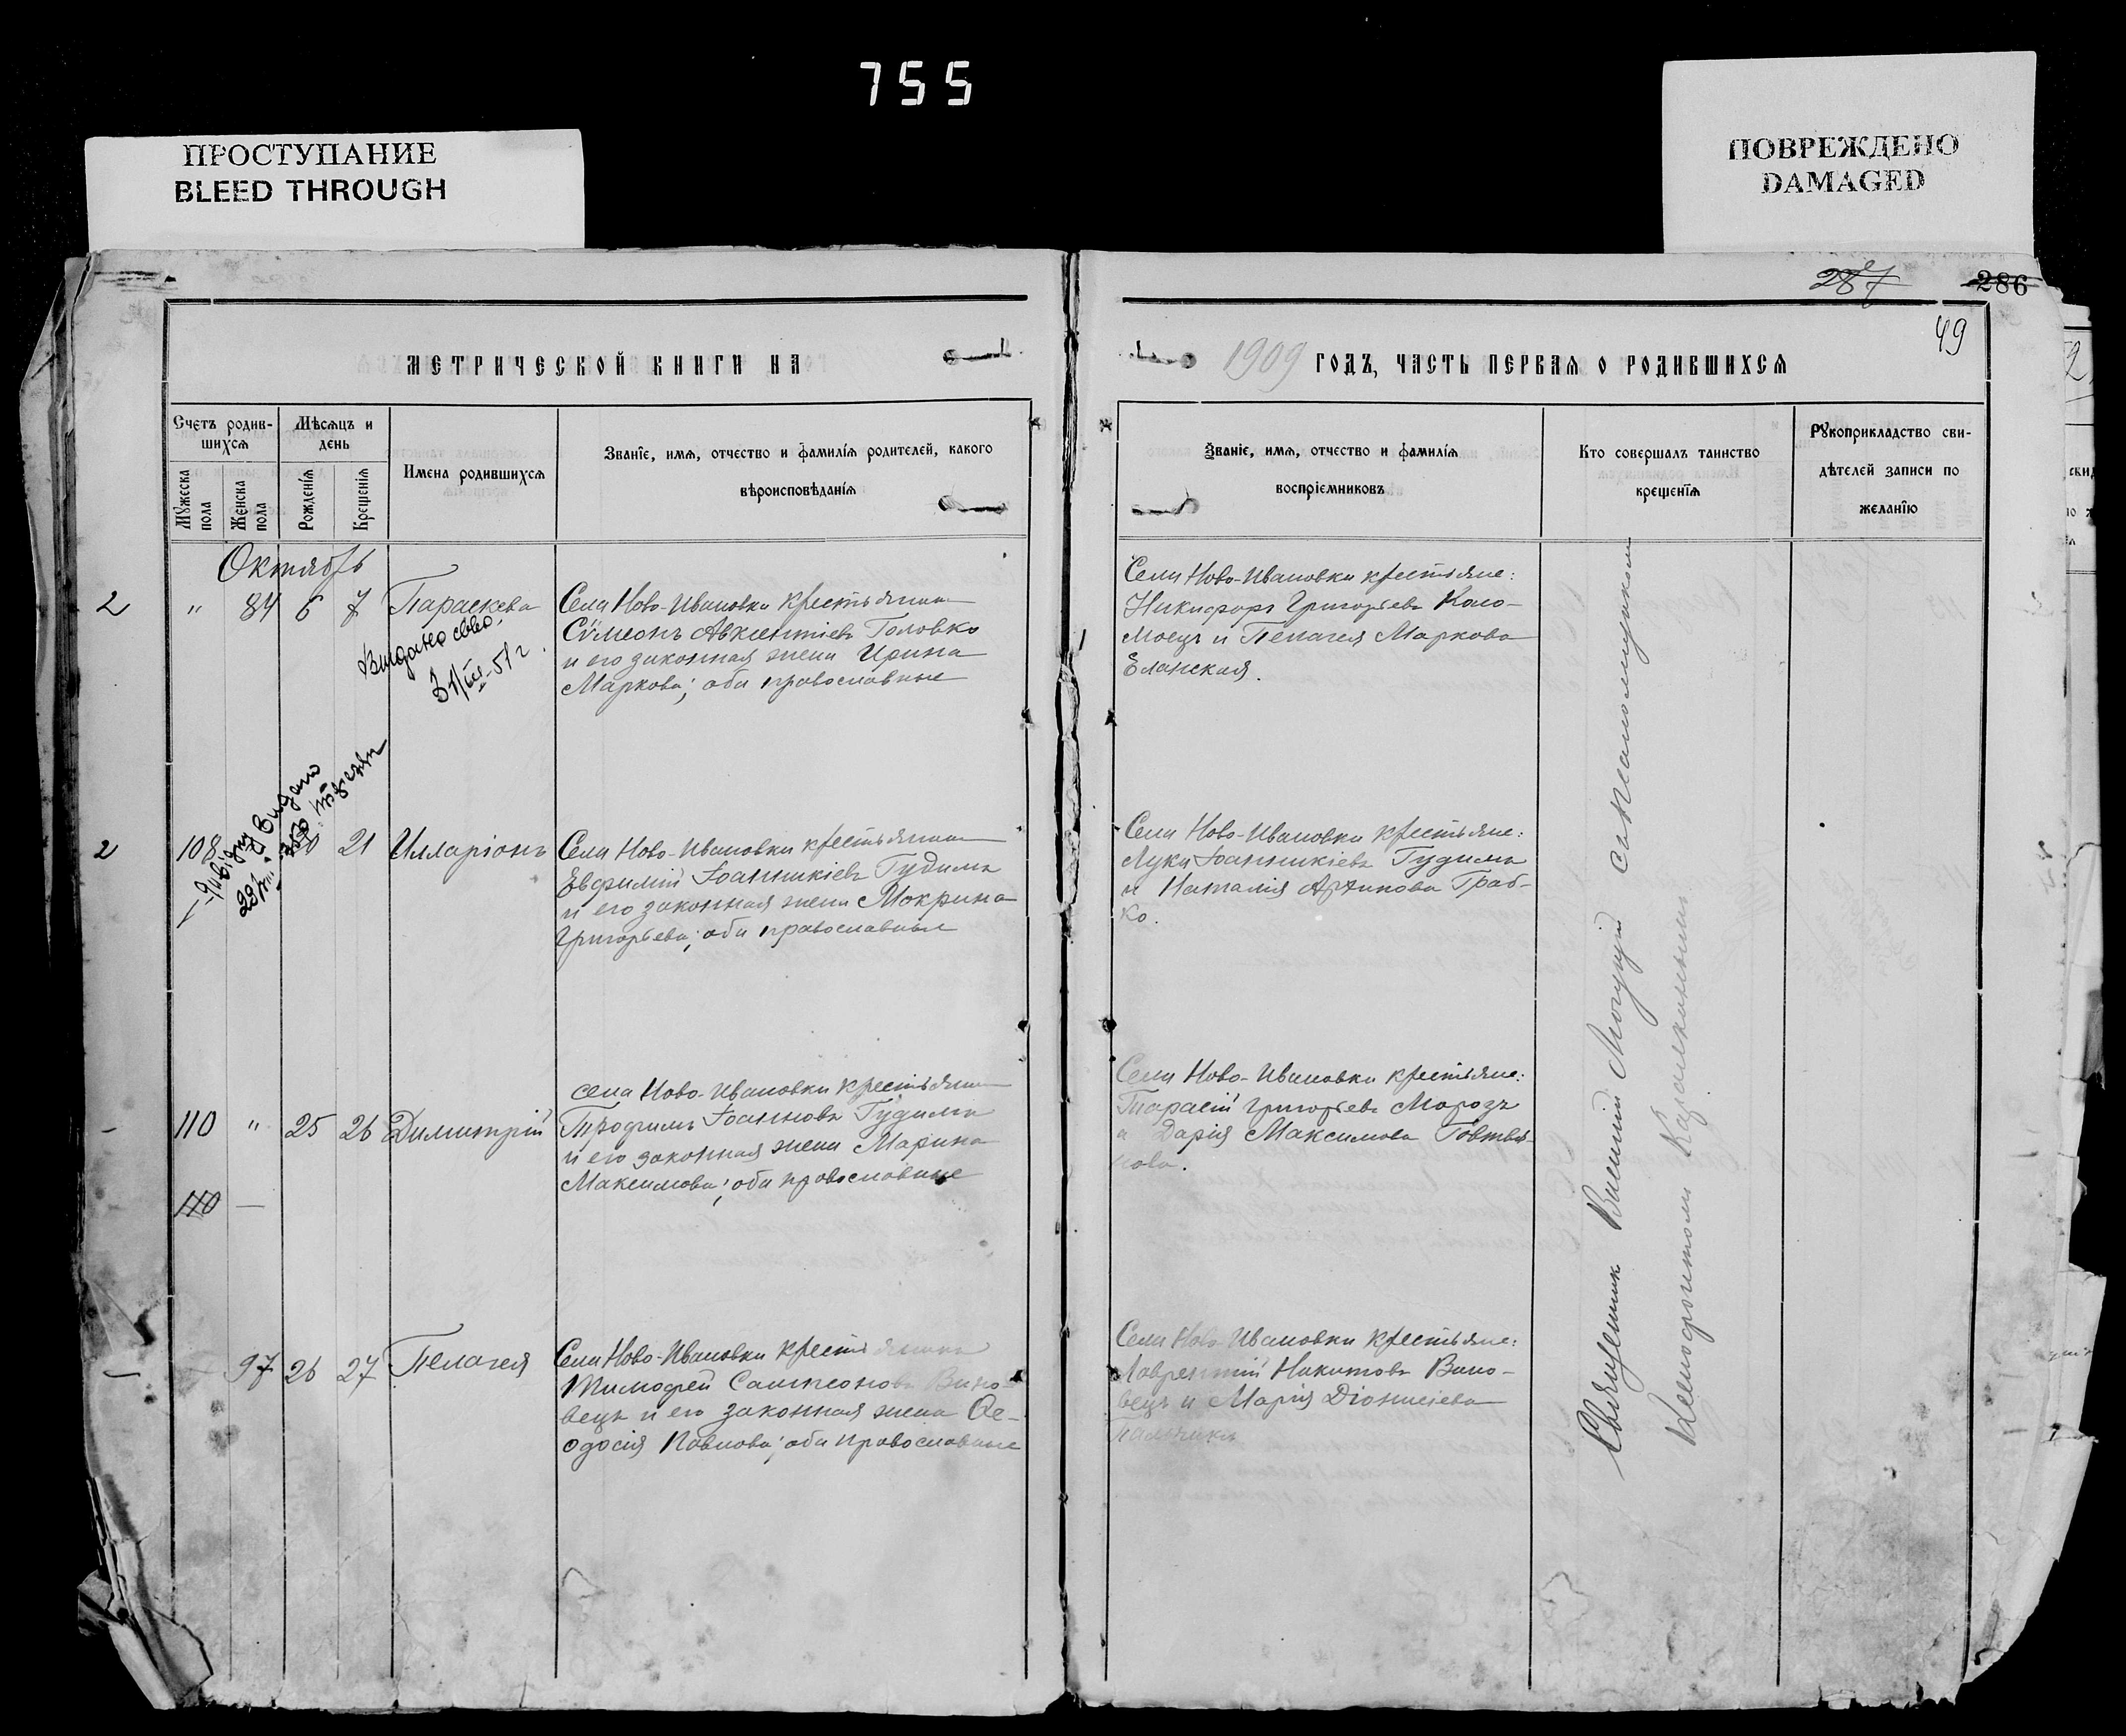 755
ПРОСТУПАНИЕ
BLEED THROUGH
ПОВРЕЖДЕНО
DAMAGED
287
286
49
МЕТРИЧЕСКОЙ КНИГИ НА
1909 ГОДЪ, ЧАСТЬ ПЕРВАЯ О РОДИВШИХСЯ
Счетъ родив-
шихся
Мѣсяцъ и
день
Мужеска
пола
Женска
пола
Рожденія
Крещенія
Имена родившихся
Званіе, имя, отчество и фамилія родителей, какого
вѣроисповѣданія
Званіе, имя, отчество и фамилія
воспріемниковъ
Кто совершалъ таинство
крещенія
Рукоприкладство сви-
дѣтелей записи по
желанію
Октябрь
2 " 84 6 7 Параскева
Села Ново-Ивановки крестьянинъ
Сѵмеонъ Авксентіевъ Головко
и его законная жена Ирина
Маркова; оба православные
Села Ново-Ивановки крестьяне:
Никифоръ Григорьевъ Коло-
моецъ и Пелагея Маркова
Еланская.
2 108 20 21 Илларіонъ
Села Ново-Ивановки крестьянинъ
Евфимій Іоанникіевъ Гудима
и его законная жена Мокрина
Григорьева; оба православные
Села Ново-Ивановки крестьяне:
Лука Іоанникіевъ Гудима
и Наталія Граб-
ко.
110 " 25 26 Димитрій
села Ново-Ивановки крестьянинъ
Трофимъ Іоанновъ Гудима
и его законная жена Марина
Максимова; оба православные
Села Ново-Ивановки крестьяне:
Тарасій Григорьевъ Морозъ
и Дарія Максимова
110 —
97 26 27 Пелагея
Села Ново-Ивановки крестьянинъ
Тимофей Сампсоновъ Вино-
вецъ и его законная жена Ѳе-
одосія Павлова; оба православные
Села Ново-Ивановки крестьяне:
Лаврентій Никитовъ Вино-
вецъ и Марія Діонисіева
Священник Василий съ псаломщиком